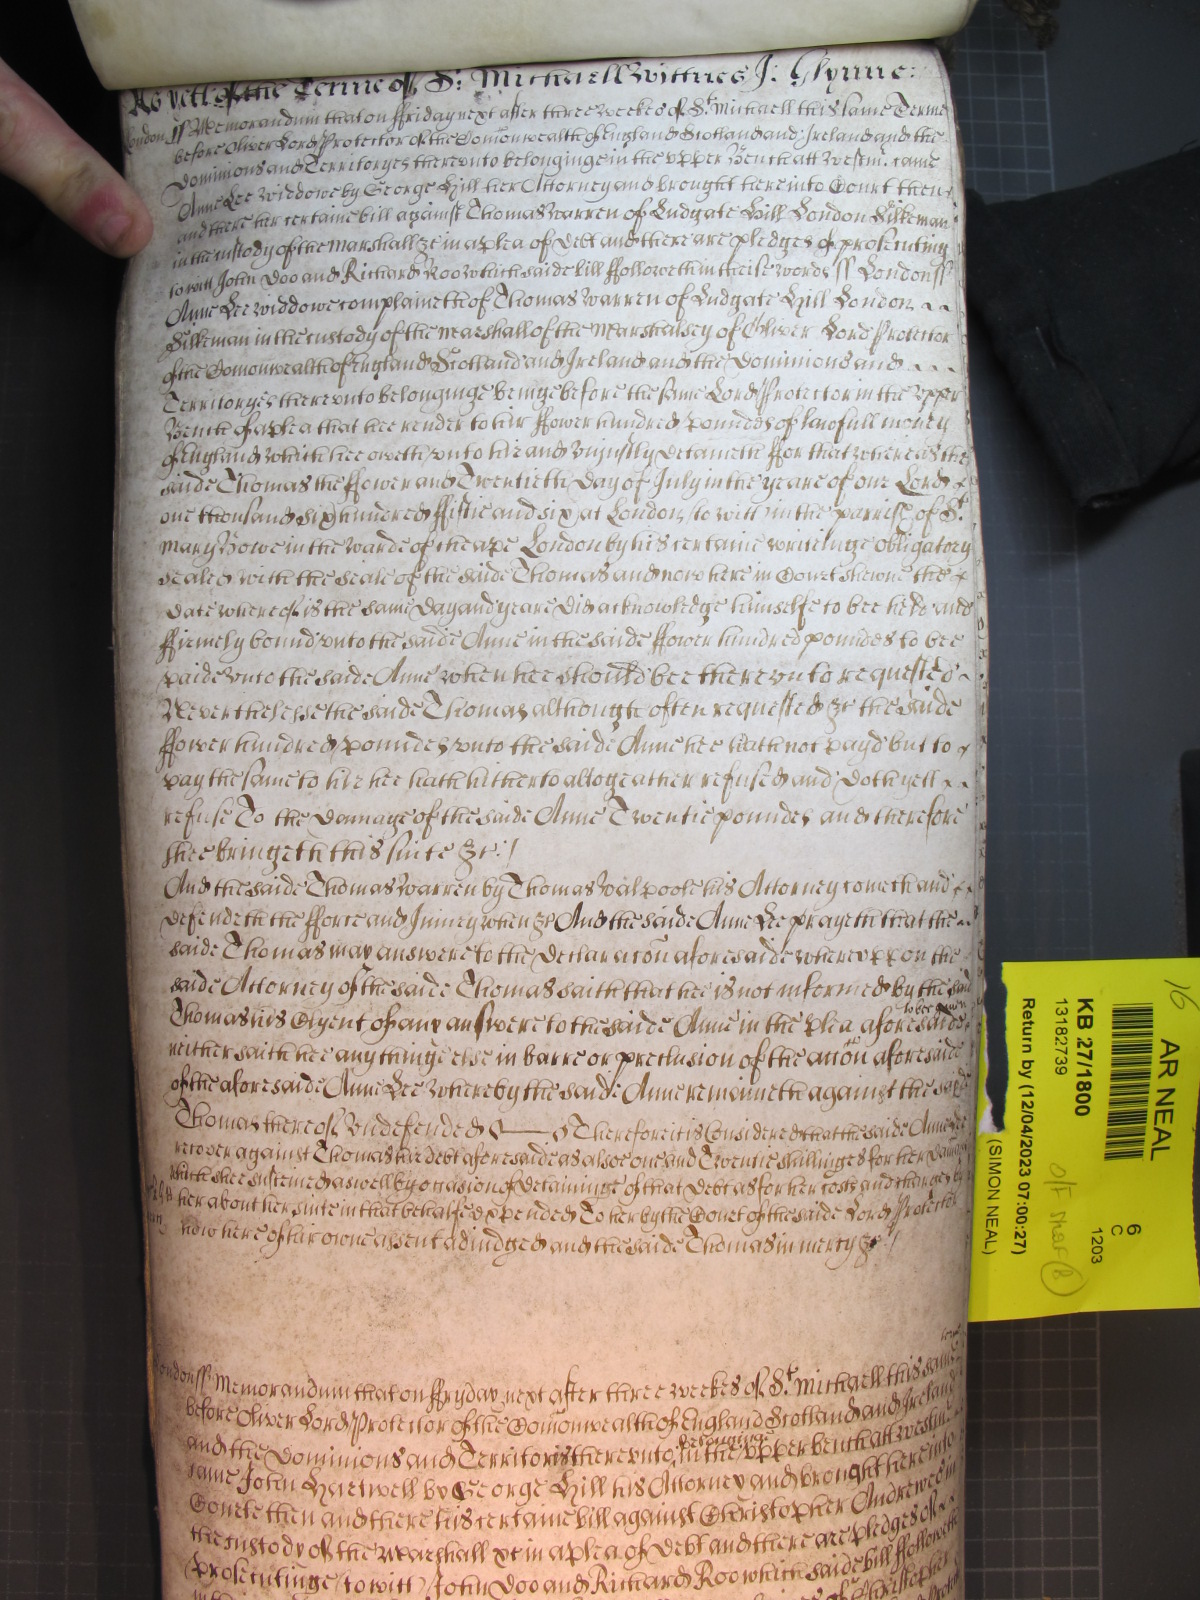 As yett of the Terme of St. Michaell Wittnes J: Glynne:
London ss Memorandum that on ffriday next after three weekes of St. Michaell this same Terme
before Oliver Lord Protector of the Comonwealth of England Scotland and Ireland and the
Dominions and Territoryes thereunto belonginge in the upper Bench att Westm. came
Anne Lee Widdowe by George Hill her Attorney and brought here into Court then
and there her certaine bill against Thomas Warren of Ludgate Hill London Silkeman
in the custody of the Marshall &c in a plea of Debt and there are pledges of prosecuting
to witt John Doo and Richard Roo which saide bill ffolloweth in theise words ss London ss
Anne Lee widdowe complaineth of Thomas Warren of Ludgate Hill London
Silkeman in the custody of the Marshall of the Marshalsey of Oliver Lord Protector
of the Comonwealth of England Scotland and Ireland and the Dominions and
Territoryes thereunto belonginge beinge before the same Lord Protector in the upper
Bench of a plea that hee render to her ffower hundred Poundes of lawfull money
of England which hee oweth unto her and unjustly detaineth ffor that whereas the
saide Thomas the ffower and Twentieth day of July in the yeare of our Lord
one thousand six hundred ffiftie and six at London to witt in the parrish of St.
Mary Bowe in the warde of cheape London by his certaine writeinge obligatory
sealed with the seale of the saide Thomas and now here in Court shewne the
date whereof is the same day and yeare did acknowledge himselfe to bee held and
ffirmely bound unto the saide Anne in the saide ffower hundred poundes to bee
paide unto the saide Anne when hee should bee thereunto requested
Neverthelesse the saide Thomas although often requested &c the saide
ffower hundred poundes unto the saide Anne hee hath not payd but to
pay the same to her hee hath hitherto altogeather refused and doth yett
refuse To the damage of the saide Anne Twentie poundes and therefore
shee bringeth this suite &c:/
And the saide Thomas Warren by Thomas Walpoole his Attorney cometh and
defendeth the fforce and Iniury when &c And the saide Anne Lee prayeth that the
saide Thomas may answere to the declaracon aforesaide whereuppon the
saide Attorney of the saide Thomas saith that hee is not informed by the said
Thomas his Clyent of any answere to the saide Anne in the plea aforesaide to bee given
neither saith hee any thinge else in barre or preclusion of the accon aforesaide
of the aforesaide Anne Lee whereby the saide Anne remaineth against the saide
Thomas thereof undefended Therefore it is Considered that the saide Anne Lee
recover against Thomas her debt aforesaide as alsoe one and Twentie shillinges for her damages
which shee susteined aswell by occasion of detaininge of that debt as for her costs and charges by
her about her suite in that behalfe expended To her by the Court of the saide Lord Protector
now here of her owne assent adiudged and the saide Thomas in mercy &c /
London ss Memorandum that on ffryday next after three weekes of St. Michaell this same terme
before Oliver Lord Protector of the Comonwealth of England Scotland and Ireland
and the Dominions and Territoris thereunto belonginge in the upper bench att westm.
came John Hartwell by George Hill his Attorney and brought here into
Courte then and there his certaine bill against Christopher Andrewes in
the custody of the Marshall &c in a plea of Debt and there are pledges of
prosecutinge to witt John Doo and Richard Roo which saide bill ffolloweth
AR NEAL
16
KB 27/1800
13182739
Return by (12/04/2023 07:00:27)
(SIMON NEAL)
6
C
1203